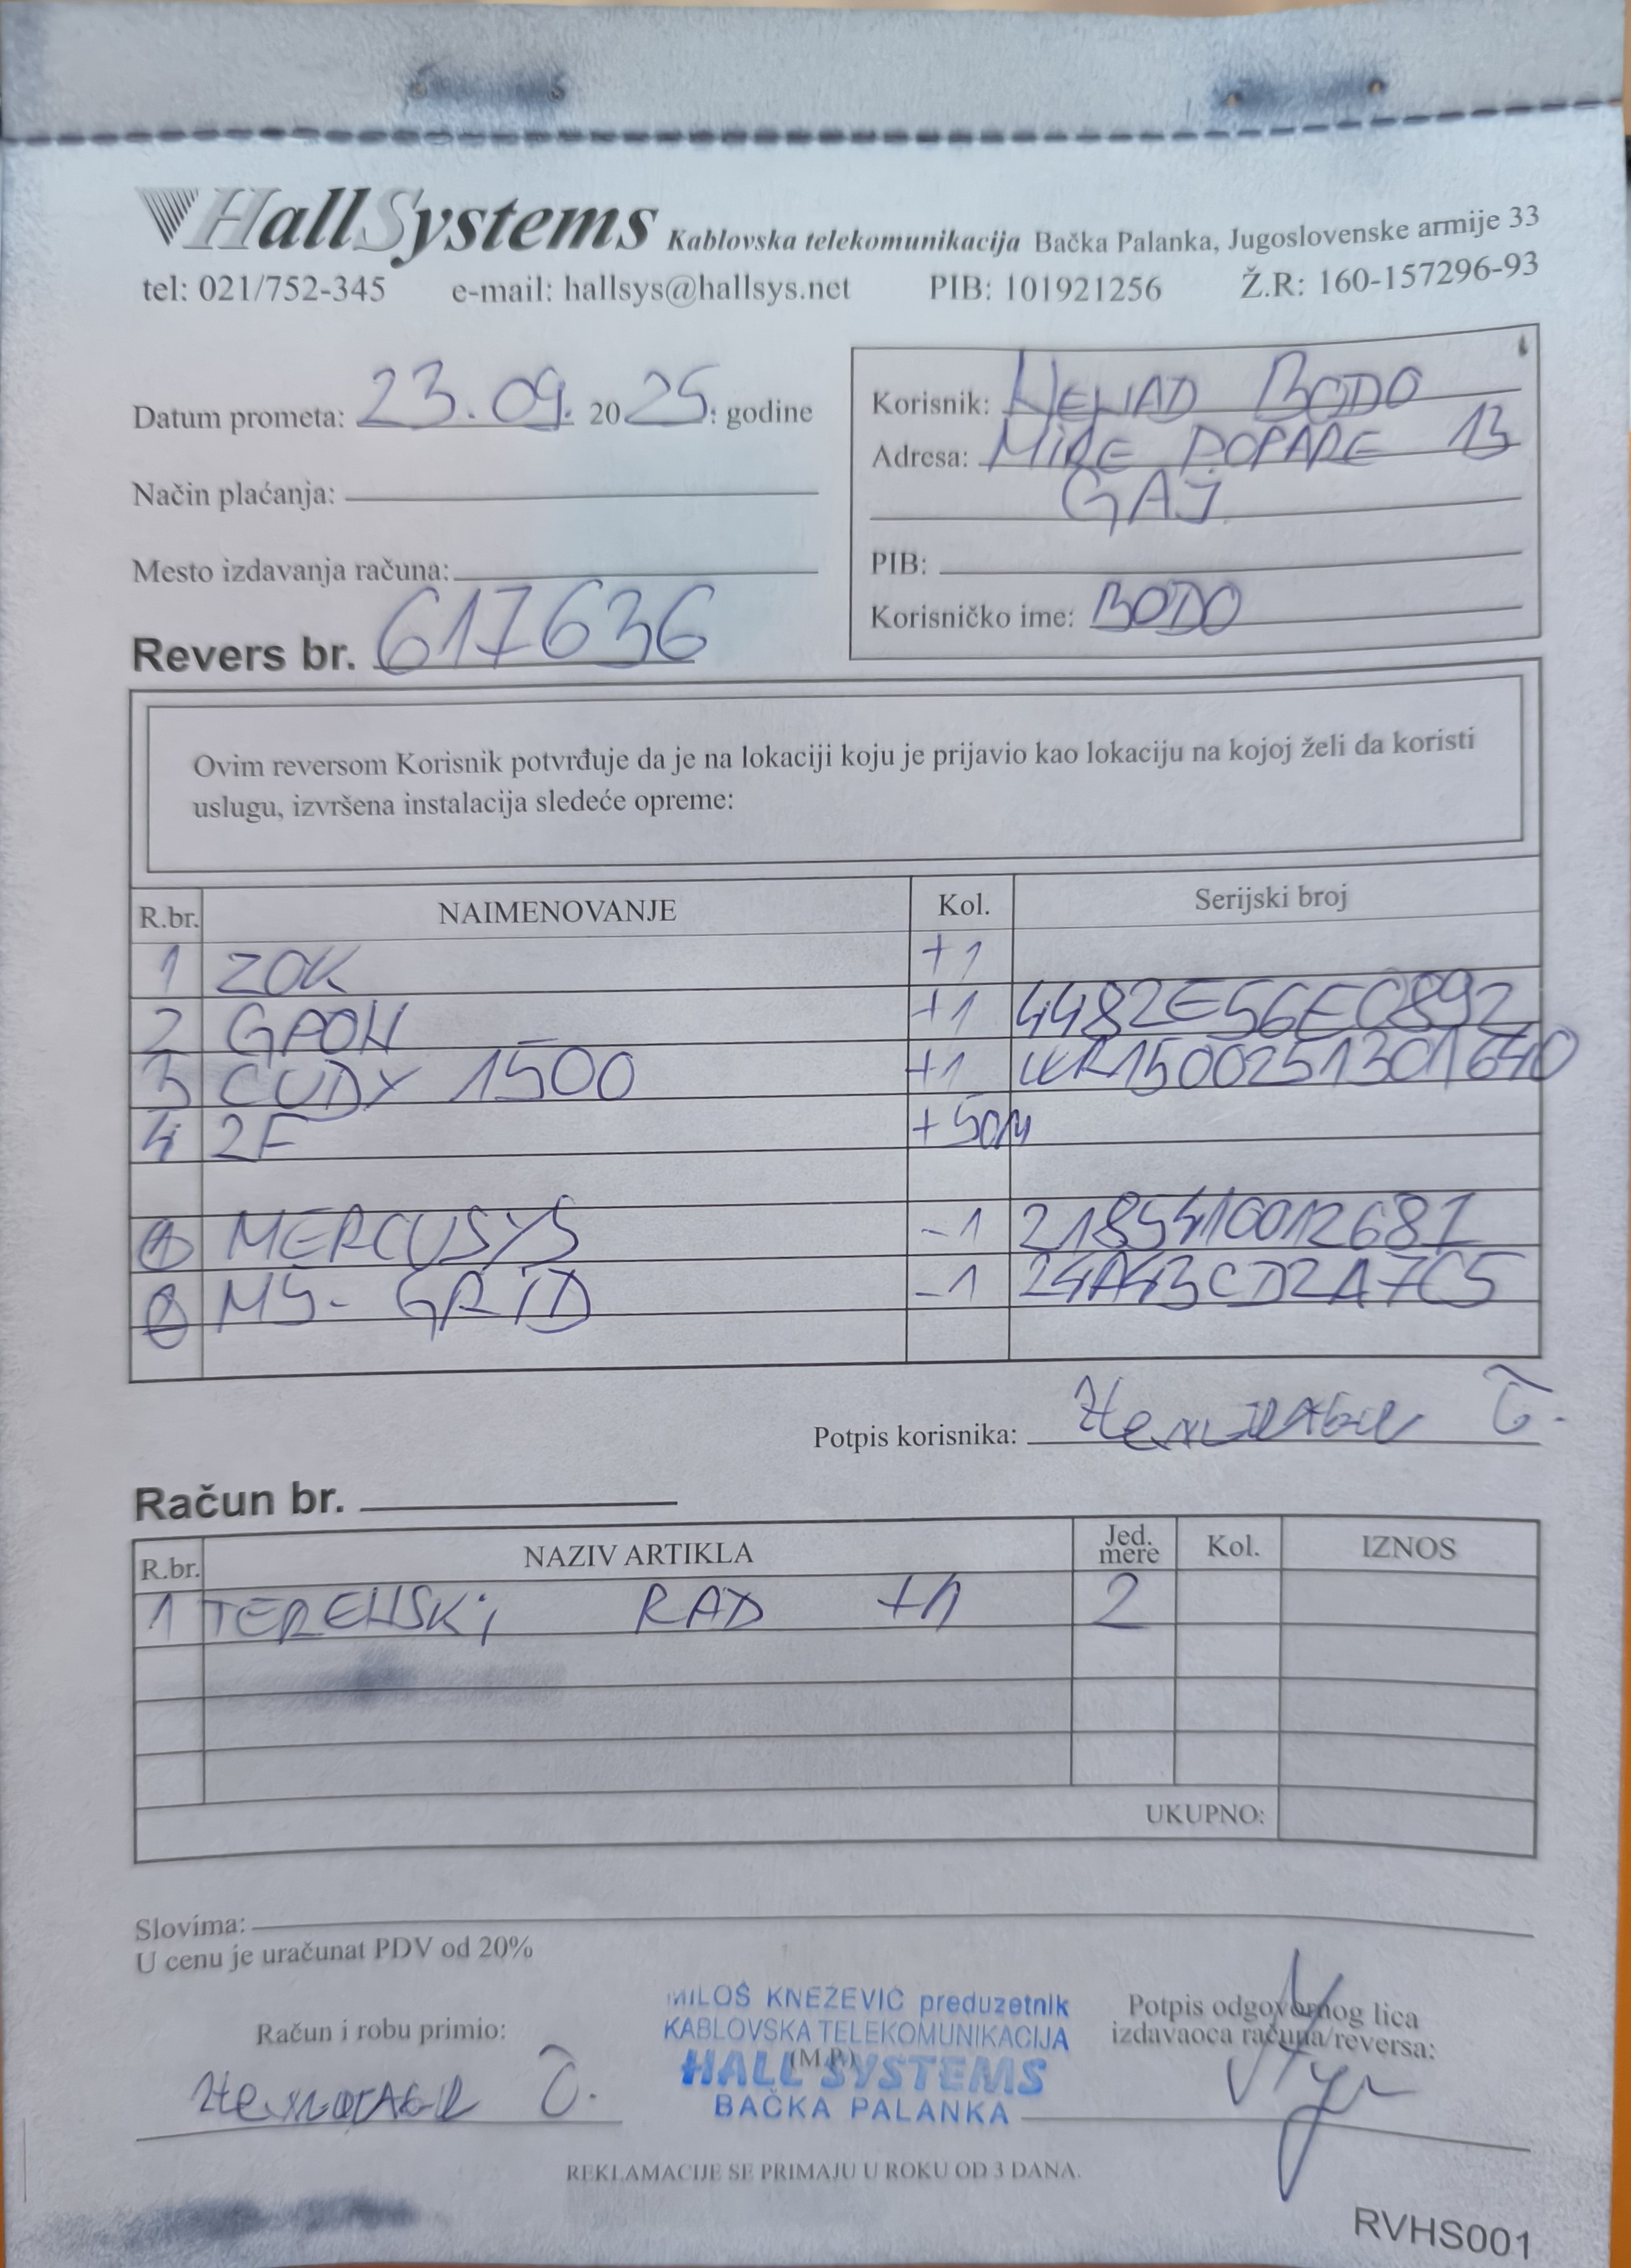 HallSystems Kablovska telekomunikacija Bačka Palanka, Jugoslovenske armije 33
tel: 021/752-345 e-mail: hallsys@hallsys.net PIB: 101921256 Ž.R: 160-157296-93
Datum prometa: 23.09. 2025. godine
Način plaćanja:
Mesto izdavanja računa:
Revers br. 617636
Korisnik: NENAD BODO
Adresa: MIRE POPARE 13
GAJ
PIB:
Korisničko ime: BODO
Ovim reversom Korisnik potvrđuje da je na lokaciji koju je prijavio kao lokaciju na kojoj želi da koristi
uslugu, izvršena instalacija sledeće opreme:
R.br. NAIMENOVANJE Kol. Serijski broj
1 ZOK +1
2 GPON +1 4482E56EC892
3 CUDY 1500 +1 WR1500251301640
4 2F +50M
1 MERCUSYS -1 2185410012681
2 MS-GRID -1 24A43CD2A7C5
Potpis korisnika:
Račun br.
R.br. NAZIV ARTIKLA Jed. mere Kol. IZNOS
1 TERENSKi RAD +1 2
UKUPNO:
Slovima:
U cenu je uračunat PDV od 20%
Račun i robu primio:
MILOŠ KNEŽEVIĆ preduzetnik
KABLOVSKA TELEKOMUNIKACIJA
(M.P.)
HALL SYSTEMS
BAČKA PALANKA
Potpis odgovornog lica
izdavaoca računa/reversa:
REKLAMACIJE SE PRIMAJU U ROKU OD 3 DANA.
RVHS001